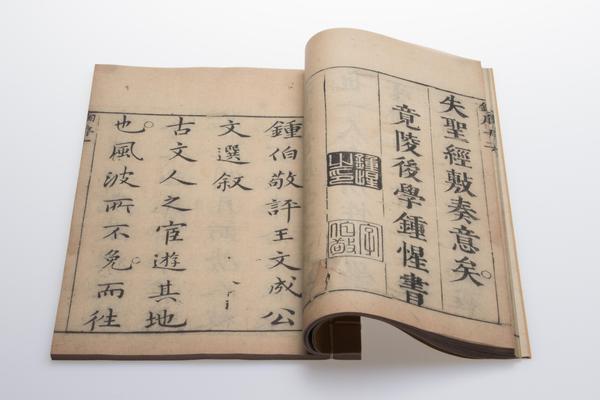 失聖經敷奏意矣
竟陵後學鍾惺書
鍾惺之印
鍾伯敬評王文成公
文選叙
古文人之宦遊其地
也風波所不免而徃